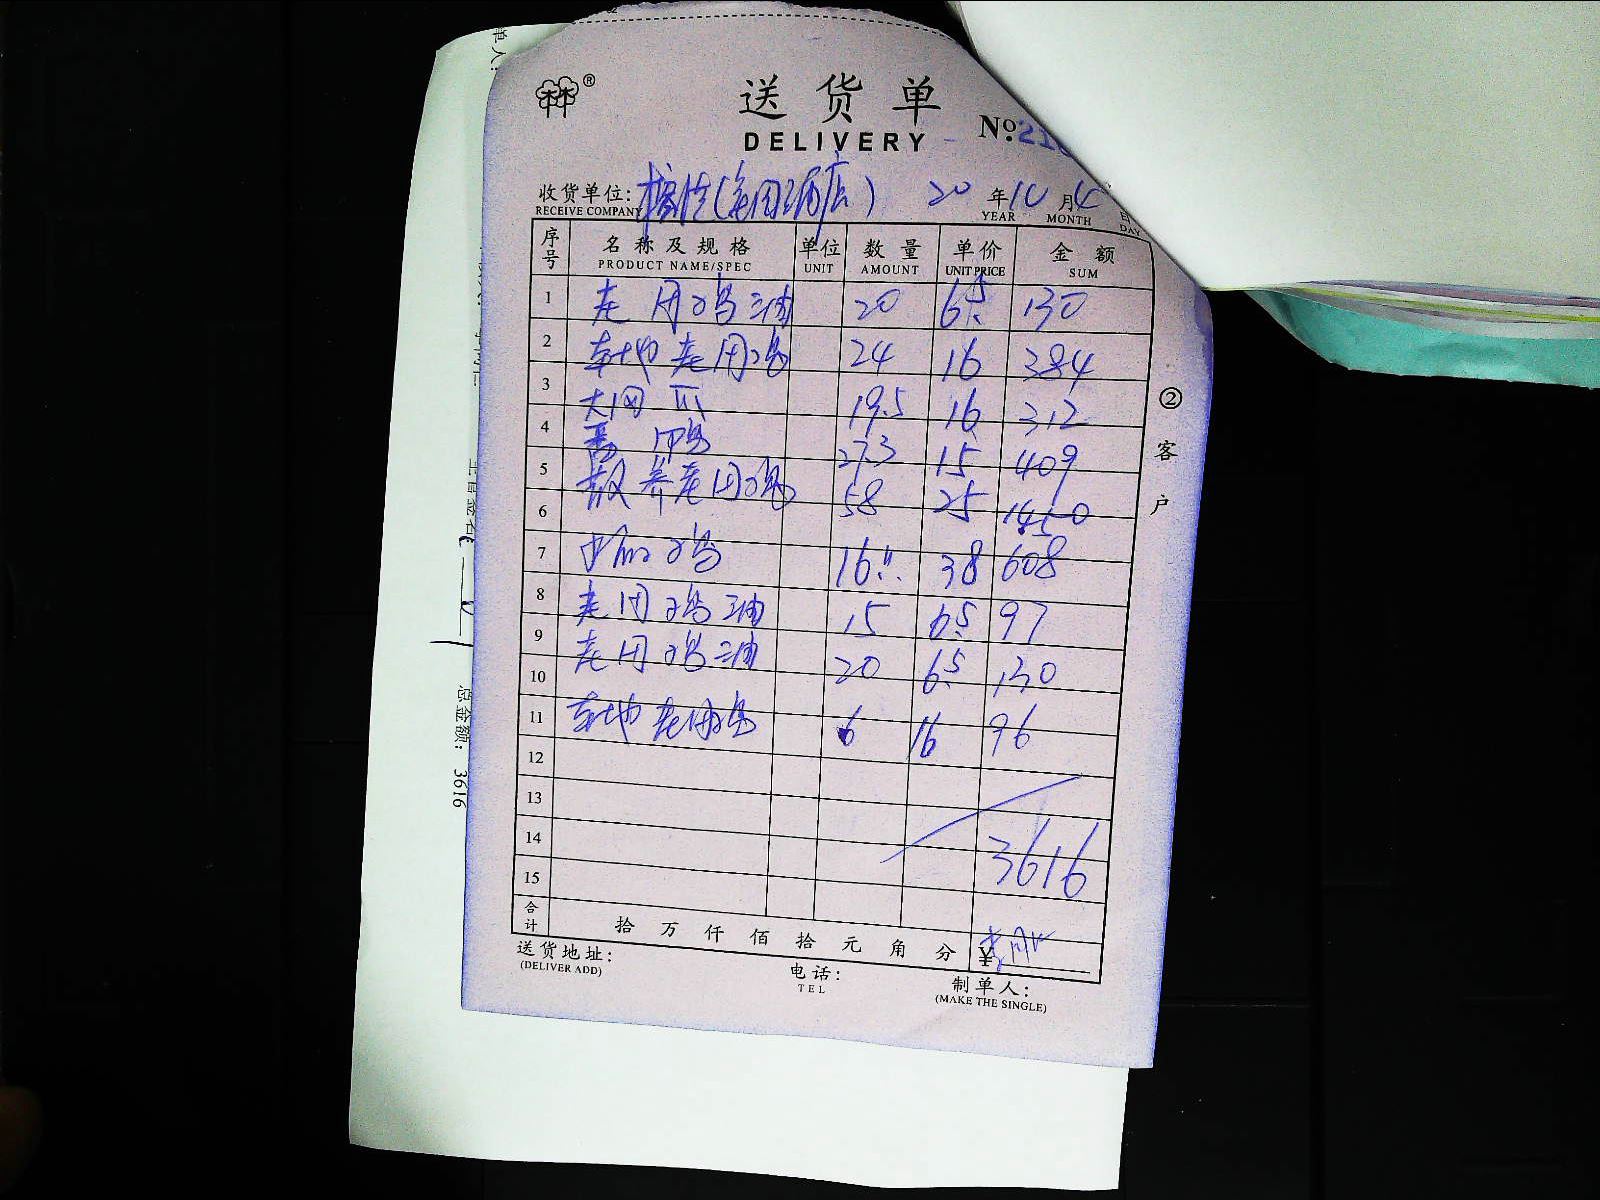 送货单
DELIVERY
№ 21
收货单位: 20 年 10 月 4 日
RECEIVE COMPANY YEAR MONTH DAY
序号 名称及规格 单位 数量 单价 金额
PRODUCT NAME/SPEC UNIT AMOUNT UNIT PRICE SUM
1 老母鸡油 20 6.5 130
2 本地老母鸡 24 16 384
3 19.5 16 312
4 27.3 15 409
5 散养老母鸡 58 25 1450
6
7 16 38 608
8 老母鸡油 15 6.5 97
9 老母鸡油 20 6.5 130
10
11 本地老母鸡 6 16 96
12
13
14 3616
15
合计 拾 万 仟 佰 拾 元 角 分 ¥
送货地址:
(DELIVER ADD)
电话:
TEL
制单人:
(MAKE THE SINGLE)
②客户
单人:
总金额: 3616